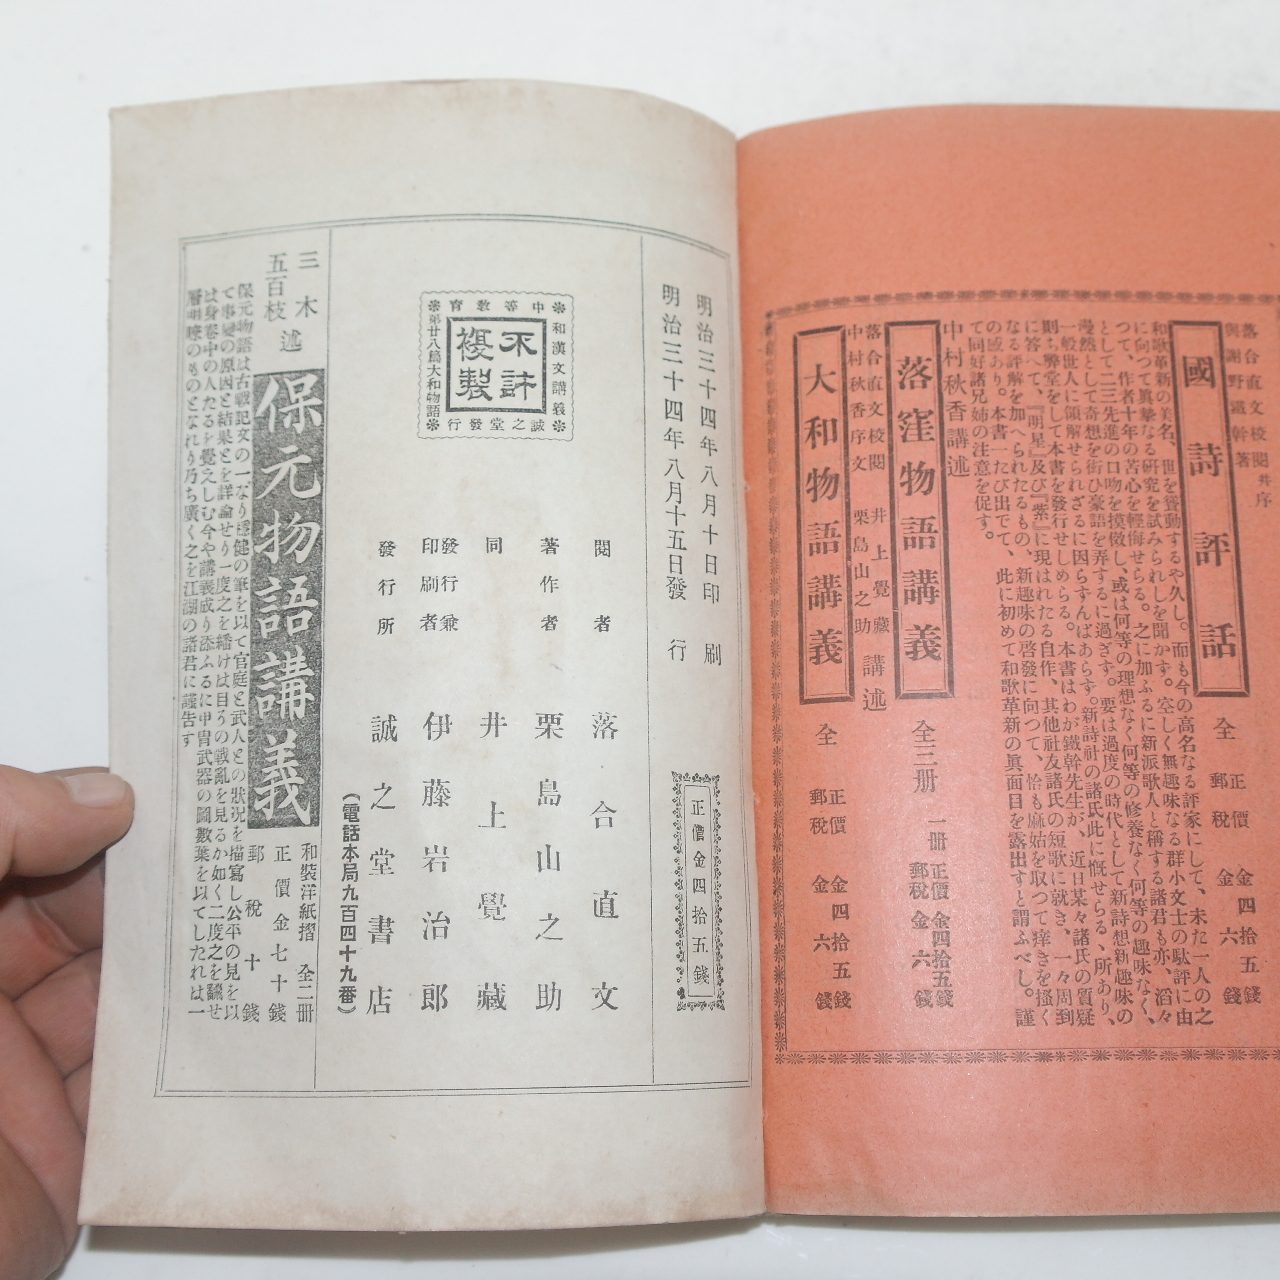 落合直文校閲幷序
與謝野鐵幹著
國詩評話
全
正價金四拾五錢
郵税金六錢
和歌革新の美名、世を聳動するや久し。而も今の高名なる評家にして、未た一人の之
に向つて眞摯なる研究を試みられしを聞かす。空しく無趣味なる群小文士の駄評に由
つて、作者十年の苦心を輕侮せらる。之に加ふるに新派歌人と稱する諸君も亦、滔々
として二三先進の口吻を摸倣し、或は何等の理想なく何等の修養なく何等の趣味なく、
漫然として奇想を衒ひ豪語を弄するに過ぎす。要は過度の時代として新詩想新趣味の
一般世人に領解せられざるに因らずんばあらす。新詩社の諸氏此に慨せらる、所あり、
則ち弊堂をして本書を發行せしめらる。本書はわが鐵幹先生が、近日某々諸氏の質疑
に答へて、『明星』及び『紫』に現はれたる自作、其他社友諸氏の短歌に就き、一々周到
なる評解を加へられたるもの、新趣味の啓發に向つて、恰も麻姑を取つて痒きを搔く
の感あり。本書一たび出でて、此に初めて和歌革新の眞面目を露出すと謂ふべし。謹
て同好諸兄姉の注意を促す。
中村秋香講述
落窪物語講義
全三册
一册 正價金四拾五錢
郵税金六錢
落合直文校閲
中村秋香序文
井上覺藏
栗島山之助
講述
大和物語講義
全
正價金四拾五錢
郵税金六錢
明治三十四年八月十日印刷
明治三十四年八月十五日發行
正價金四拾五錢
中等敎育
和漢文講義
第廿八篇大和物語
誠之堂發行
不許
複製
閲者 落合直文
著作者 栗島山之助
同 井上覺藏
發行兼
印刷者 伊藤岩治郎
發行所 誠之堂書店
(電話本局九百四十九番)
三木
五百枝
述
保元物語講義
和裝洋紙摺 全二册
正價金七十錢
郵税十錢
保元物語は古戰記文の一なり穩健の筆を以て官庭と武人との狀況を描寫し公平の見を以
て事變の原因と結果とを詳論せり一度之を繙けは目らの戰亂を見るか如く二度之を飜せ
は身卷中の人たるを覺えしむ今や講義成り添ふるに甲冑武器の圖數葉を以てしたれは一
層明瞭のものとなれり乃ち廣く之を江湖の諸君に謹告す